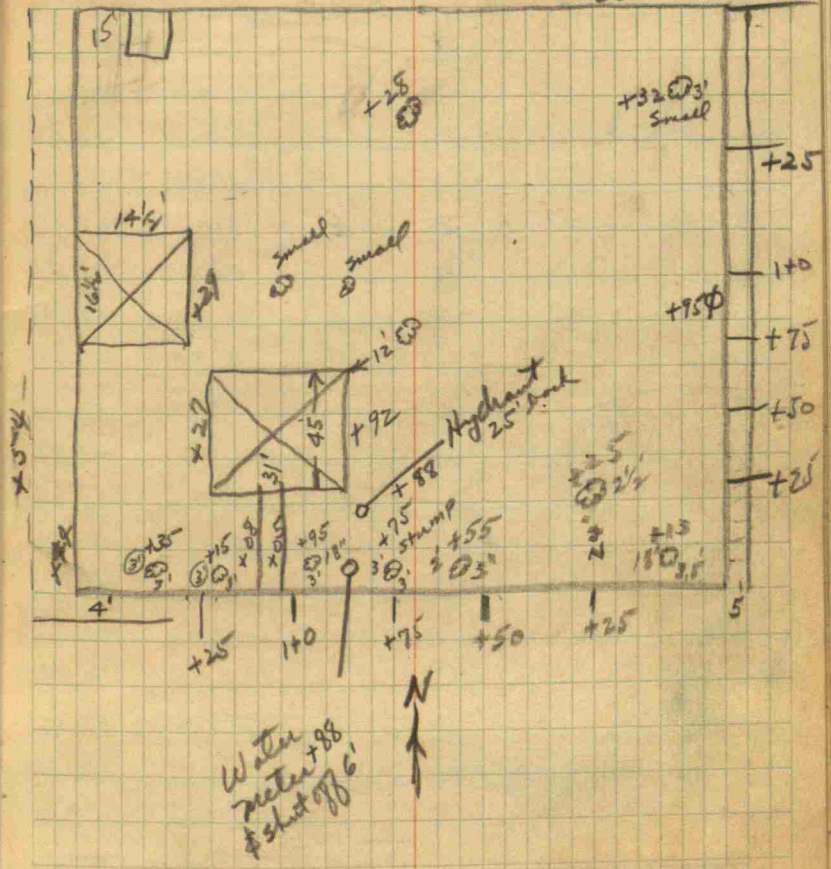 15
+28
+32 3'
Small
+25
14½'
16½'
small
small
1+0
+95
+75
12'
+50
45'
+92
31'
Hydrant
25' back
+88
+25
2½
+35
3'
+15
3'
x08
x05
+95
3' 18"
+75
Stump
3'
3'
+55
2' 3"
+13
18"
3.5'
4'
5'
+25
1+0
+75
+50
+25
N
Water
meter +88
& shut off 6'